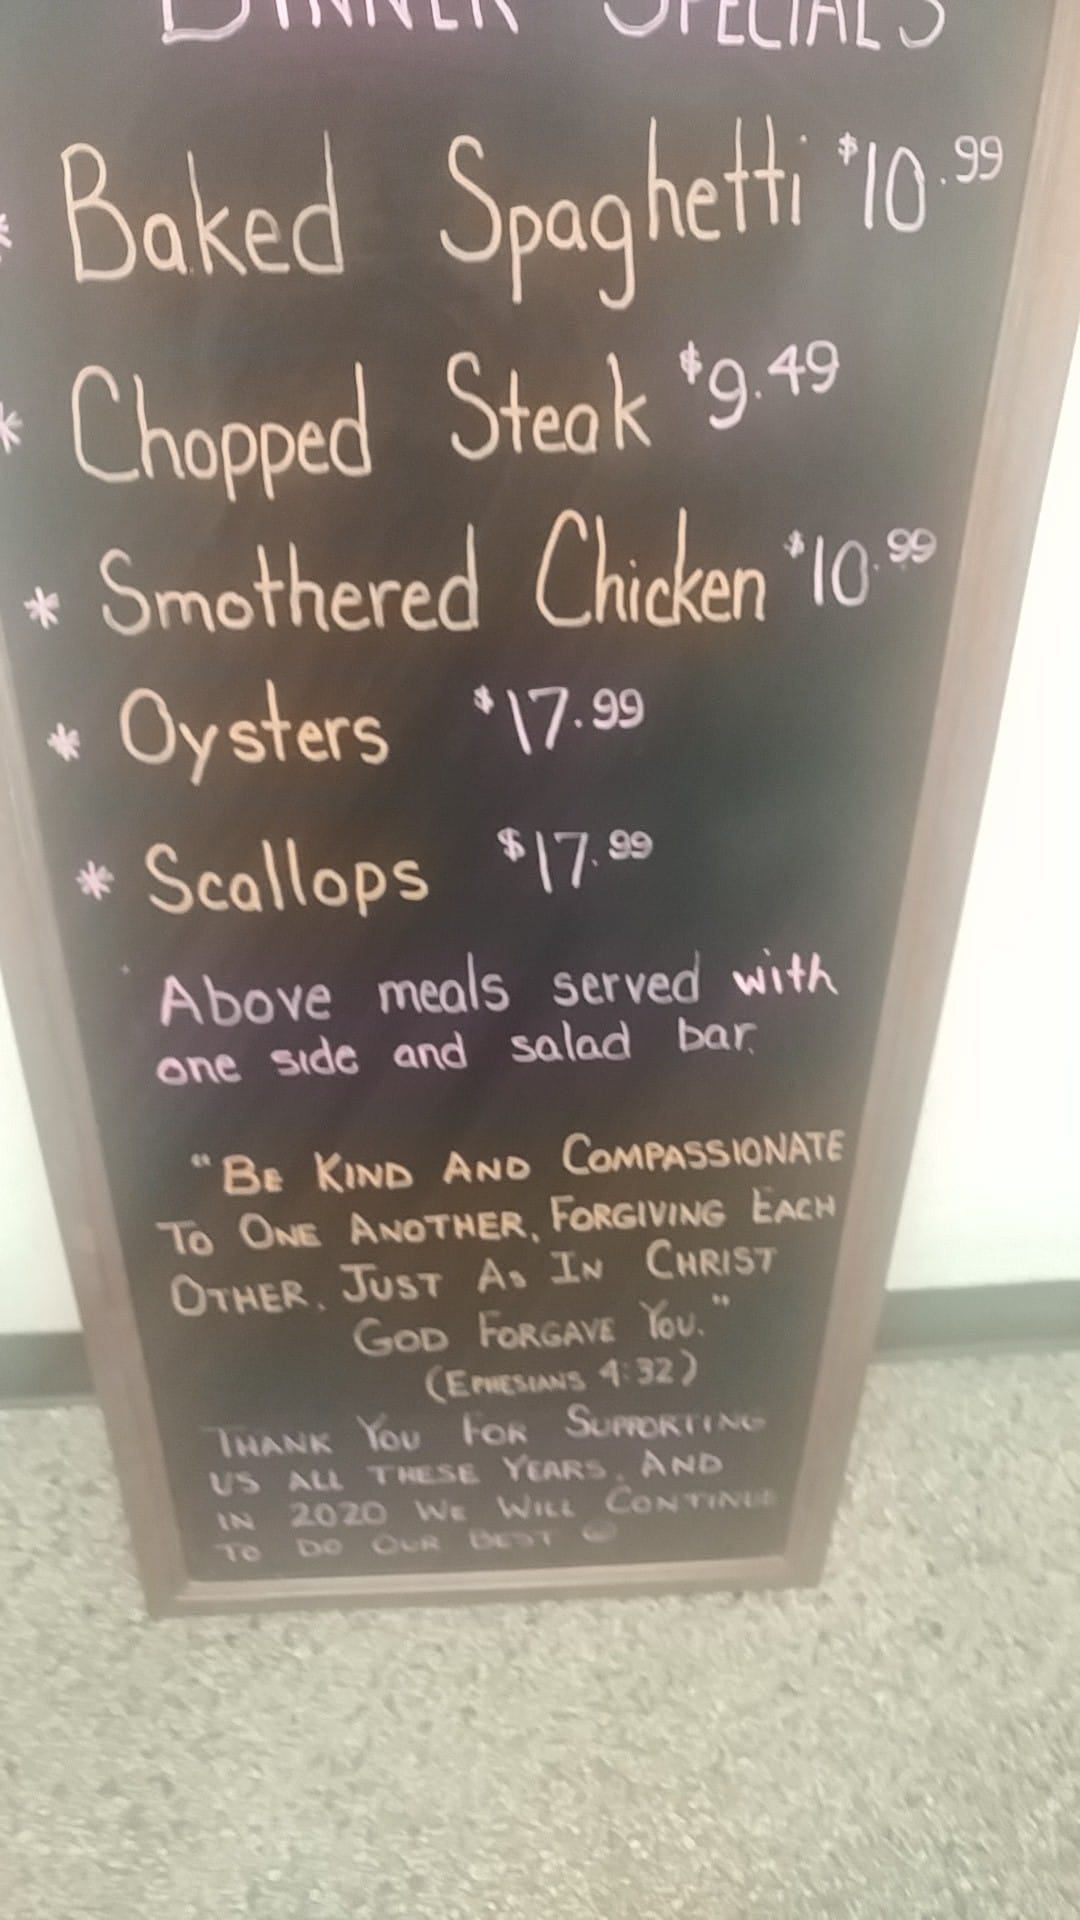 DINNER SPECIALS
* Baked Spaghetti $10.99
* Chopped Steak $9.49
* Smothered Chicken $10.99
* Oysters $17.99
* Scallops $17.99
Above meals served with
one side and salad bar.
"BE KIND AND COMPASSIONATE
TO ONE ANOTHER, FORGIVING EACH
OTHER, JUST AS IN CHRIST
GOD FORGAVE YOU."
(EPHESIANS 4:32)
THANK YOU FOR SUPPORTING
US ALL THESE YEARS, AND
IN 2020 WE WILL CONTINUE
TO DO OUR BEST ☺